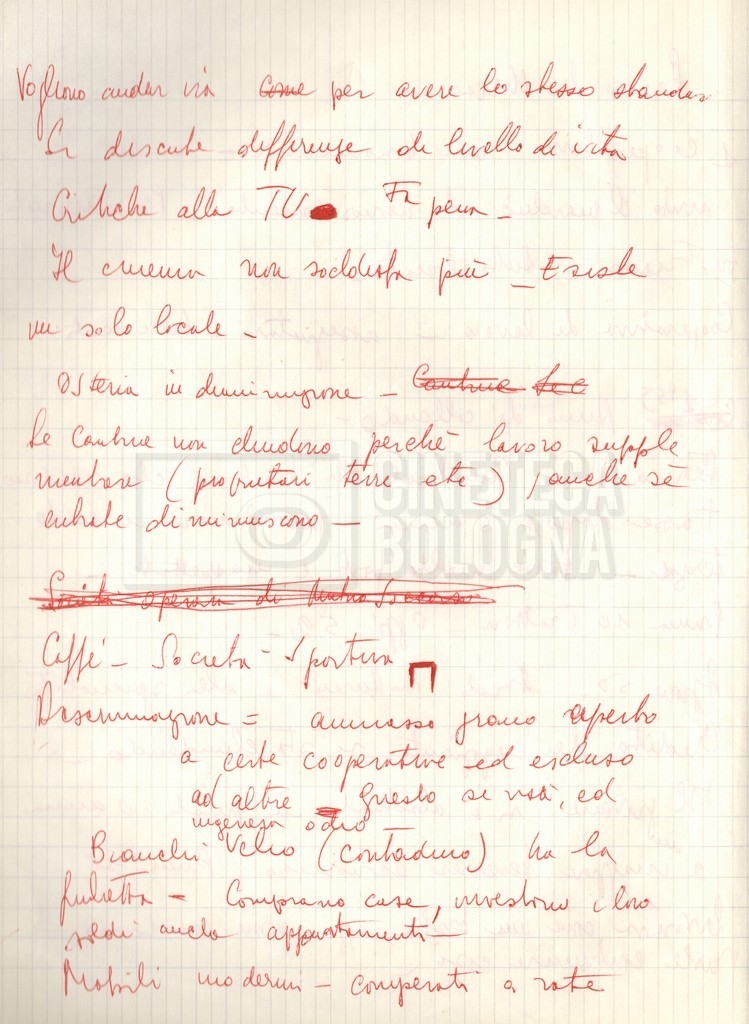 Vogliono andar via come per avere lo stesso standar
Si discute differenze di livello di vita
Critiche alla TV Fa pena -
Il cinema non soddisfa più - Esiste
un solo locale -
Osteria in diminuzione - Cantine Le C
Le Cantine non chiudono perchè lavoro supple
mentare (proprietari terre etc), anche se
entrate diminuiscono -
CINETECA
BOLOGNA
Società operaia di Mutuo Soccorso
Caffè - Società - Sportiva
Discriminazione = ammasso grano aperto
a certe cooperative ed escluso
ad altre - Questo si nota, ed
ingenera odio -
Bianchi Velio (contadino) ha la
Giulietta - Comprano case, investono i loro
soldi anche appartamenti -
Mobili moderni - comperati a rate